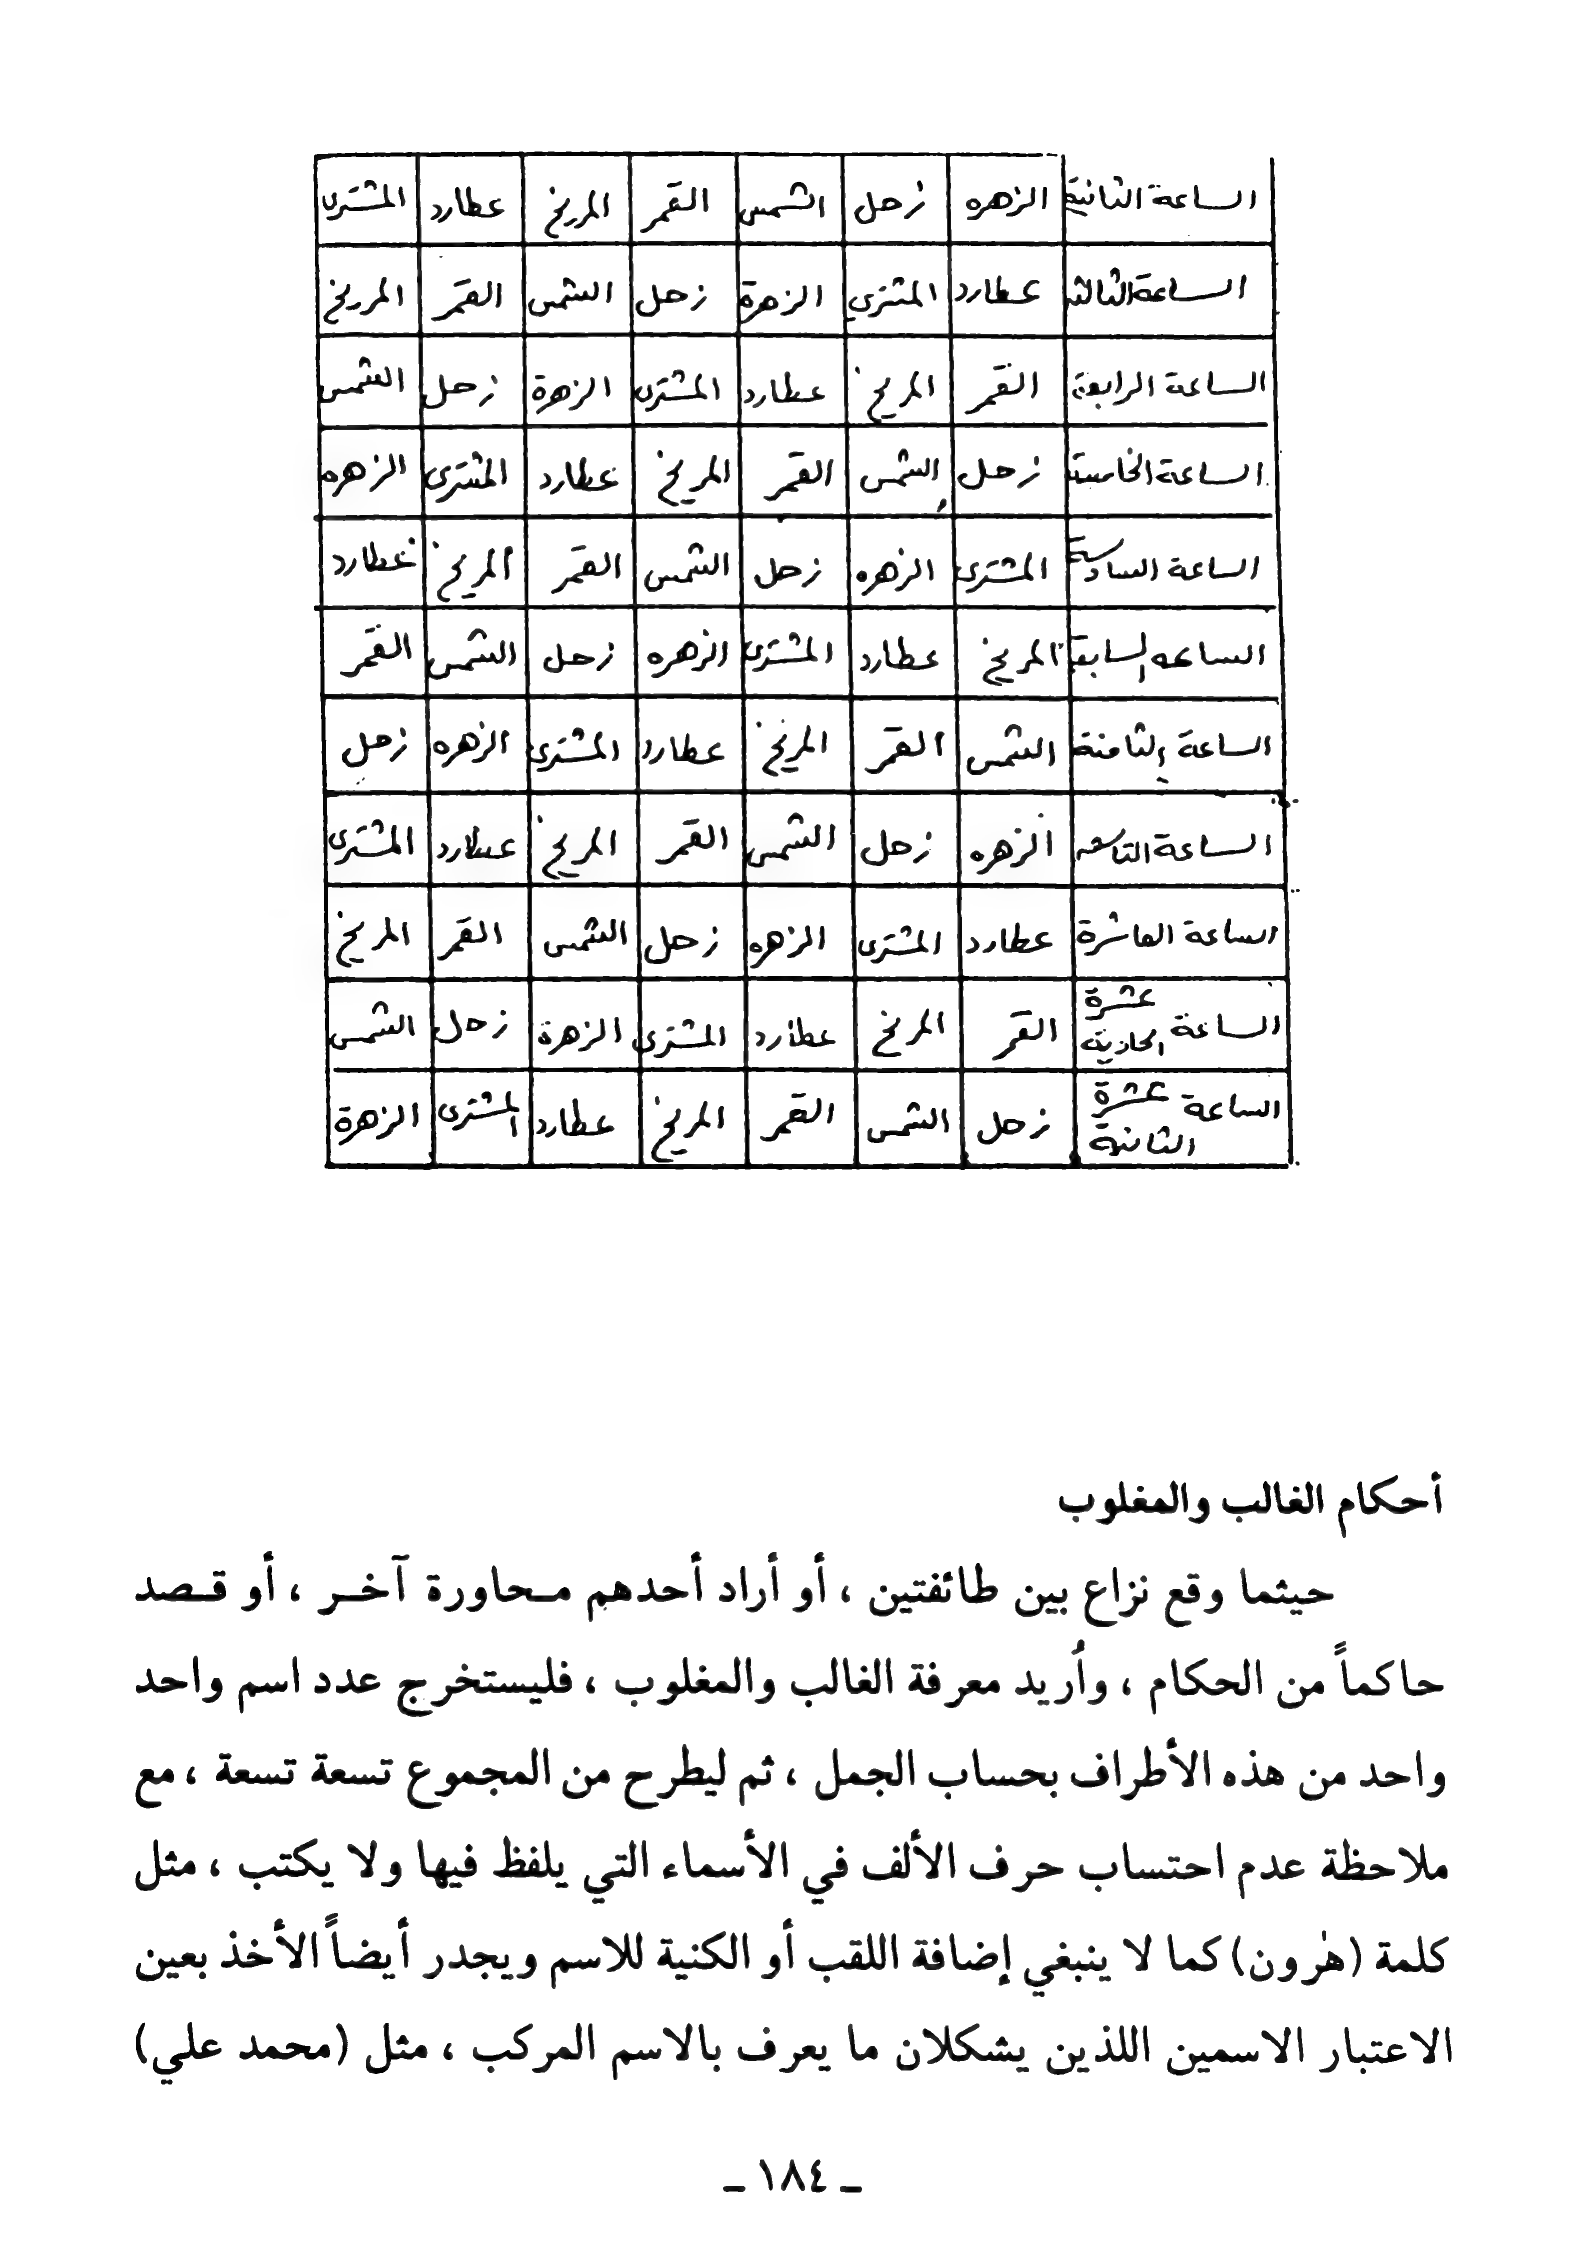 الساعة الثانية الزهره زحل الشمس القمر المريخ عطارد المشترى
الساعة الثالثة عطارد المشترى الزهرة زحل الشمس القمر المريخ
الساعة الرابعة القمر المريخ عطارد المشترى الزهرة زحل الشمس
الساعة الخامسة زحل الشمس القمر المريخ عطارد المشترى الزهره
الساعة السادسة المشترى الزهره زحل الشمس القمر المريخ عطارد
الساعه السابعة المريخ عطارد المشترى الزهره زحل الشمس القمر
الساعة الثامنة الشمس القمر المريخ عطارد المشترى الزهره زحل
الساعة التاسعه الزهره زحل الشمس القمر المريخ عطارد المشترى
الساعة العاشرة عطارد المشترى الزهره زحل الشمس القمر المريخ
الساعة الحادية عشرة القمر المريخ عطارد المشترى الزهرة زحل الشمس
الساعة الثانية عشرة زحل الشمس القمر المريخ عطارد المشترى الزهرة
أحكام الغالب والمغلوب
حيثما وقع نزاع بين طائفتين ، أو أراد أحدهم محاورة آخر ، أو قصد
حاكماً من الحكام ، وأُريد معرفة الغالب والمغلوب ، فليستخرج عدد اسم واحد
واحد من هذه الأطراف بحساب الجمل ، ثم ليطرح من المجموع تسعة تسعة ، مع
ملاحظة عدم احتساب حرف الألف في الأسماء التي يلفظ فيها ولا يكتب ، مثل
كلمة (هٰرون) كما لا ينبغي إضافة اللقب أو الكنية للاسم ويجدر أيضاً الأخذ بعين
الاعتبار الاسمين اللذين يشكلان ما يعرف بالاسم المركب ، مثل (محمد علي)
ـ ١٨٤ ـ